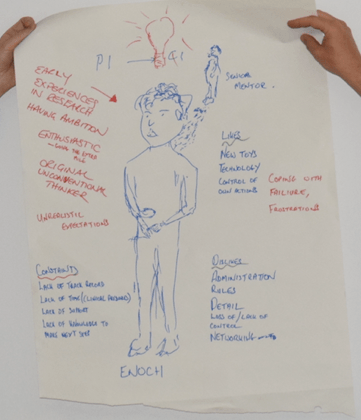 PI
EARLY
EXPERIENCES
IN RESEARCH
HAVING AMBITION
ENTHUSIASTIC
- GOING THE EXTRA
MILE
ORIGINAL
UNCONVENTIONAL
THINKER
UNREALISTIC
EXPECTATIONS
CONSTRAINTS
LACK OF TRACK RECORD
LACK OF TIME/(CLINICAL DEMAND)
LACK OF SUPPORT
LACK OF KNOWLEDGE TO
MAKE NEXT STEP
SENIOR
MENTOR.
LIKES
NEW TOYS
TECHNOLOGY
CONTROL OF
OWN ACTIONS
COPING WITH
FAILURE,
FRUSTRATIONS
DISLIKES
ADMINISTRATION
RULES
DETAIL
LOSS OF/LACK OF
CONTROL
NETWORKING
ENOCH